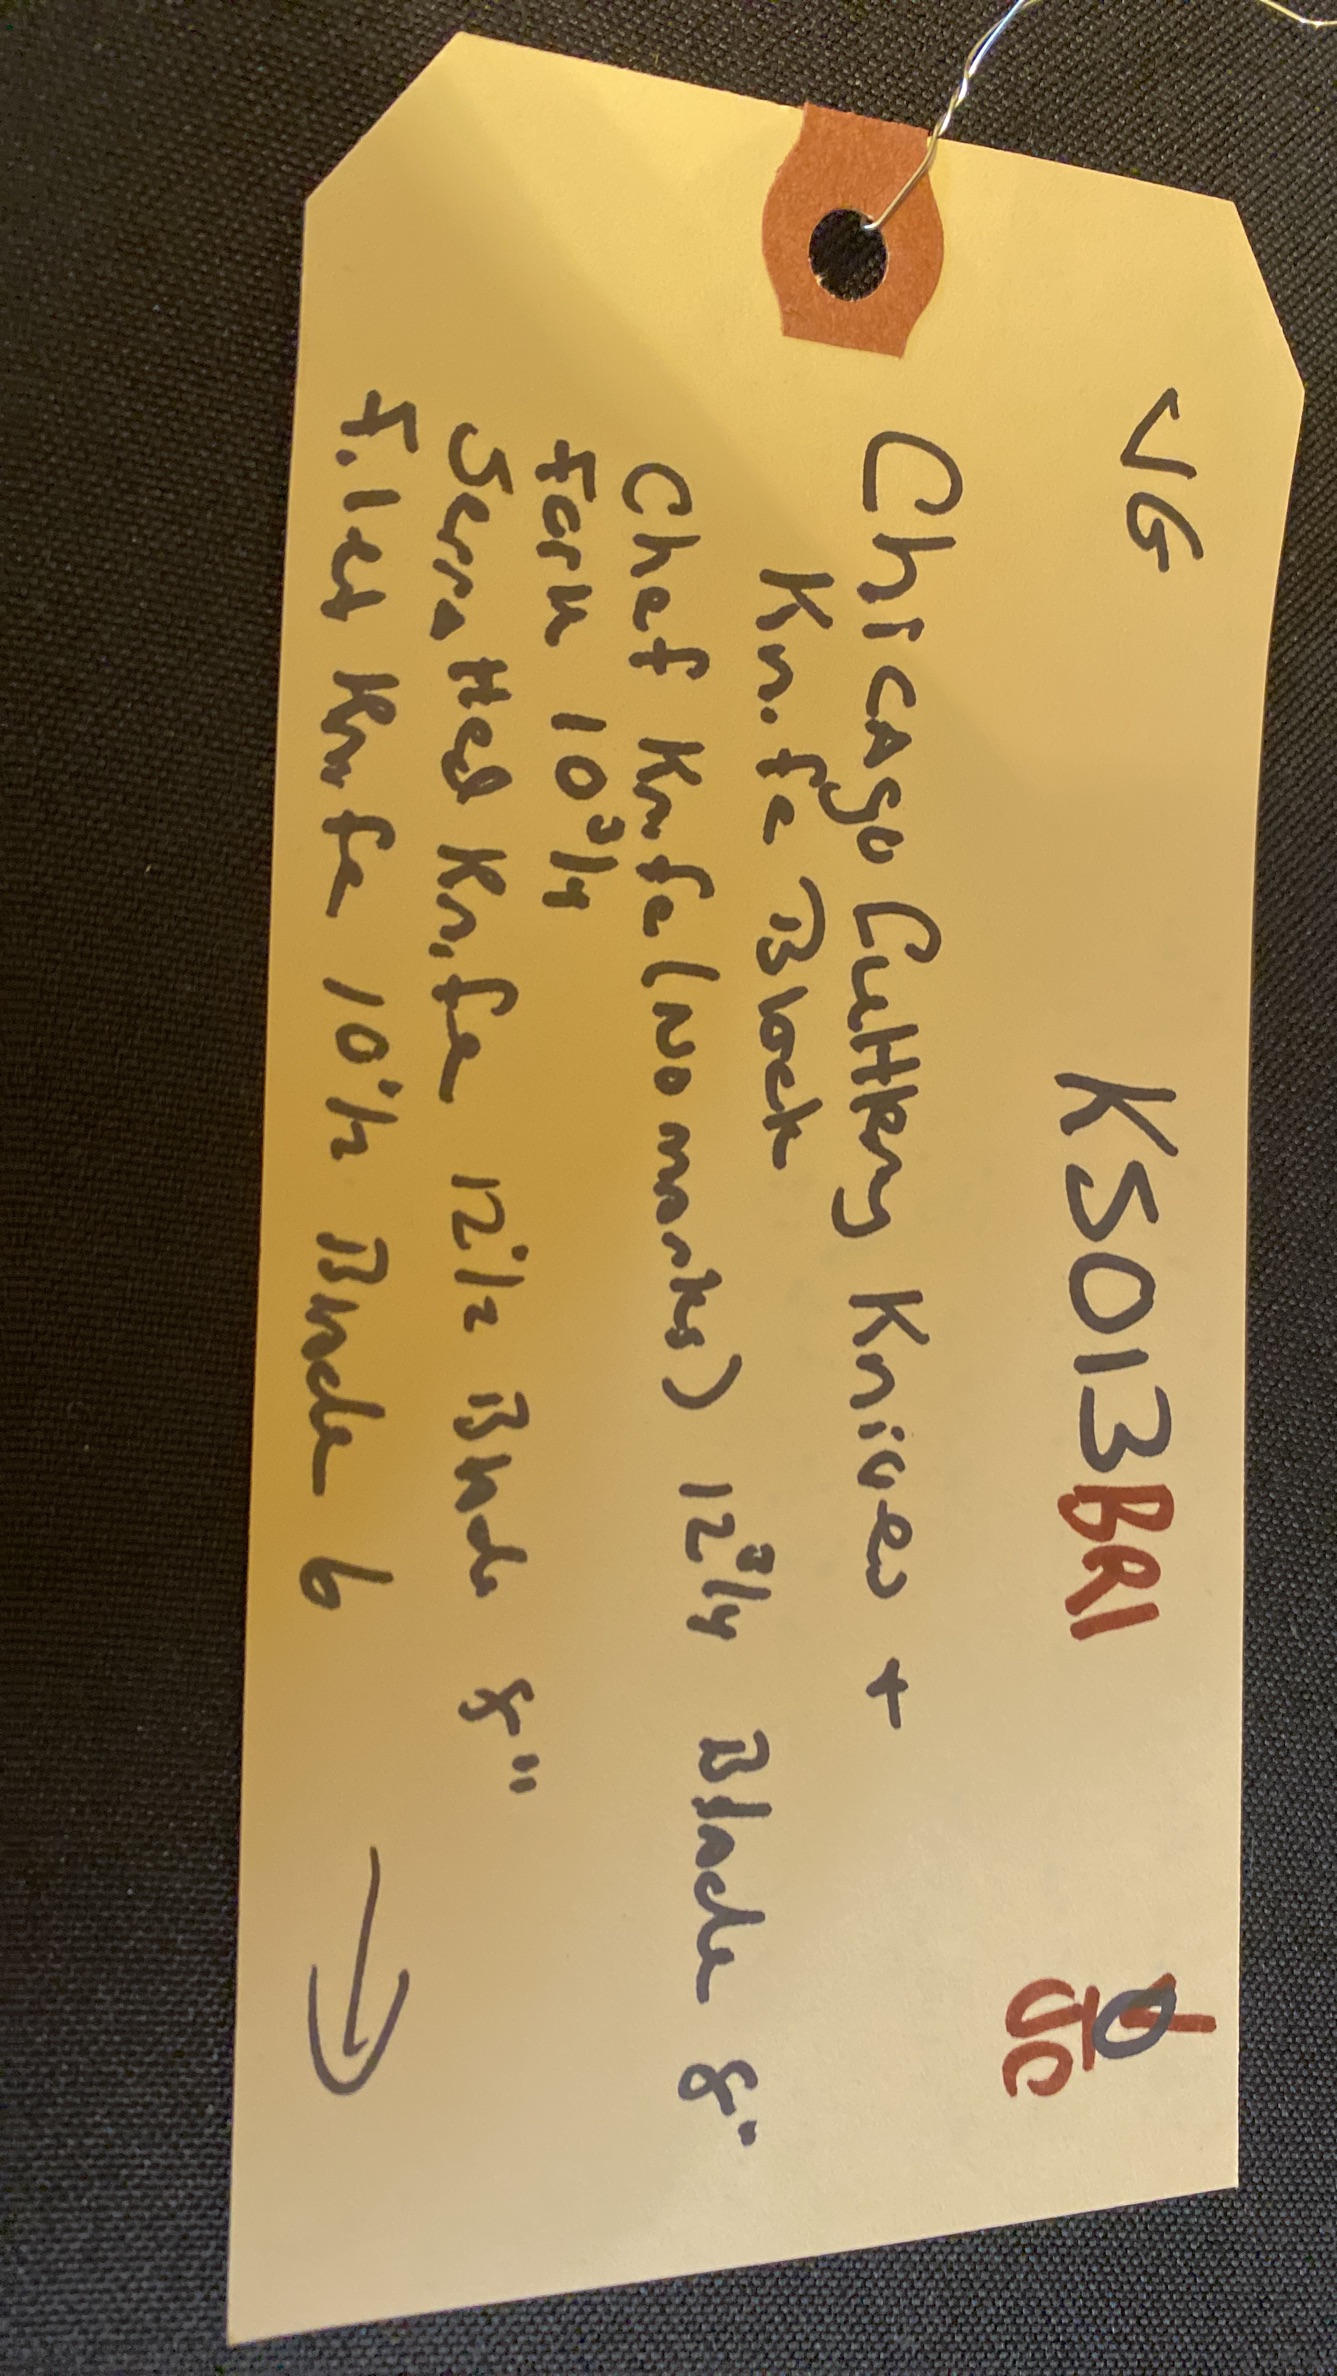 VG KS013BRI
JC
Chicago Cuttlery Knives +
Knife Block
Chef Knife (No marks) 12 3/4 Blade 8"
Fork 10 3/4
Serrated Knife 12 1/2 Blade 8"
Filet Knife 10 1/2 Blade 6